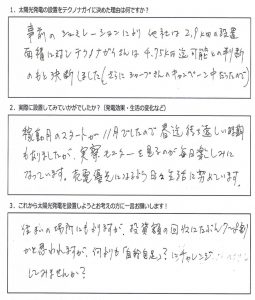 1、太陽光発電の設置をテクノナガイに決めた理由は何ですか？
事前のシュミレーションにより 他社は2.9kwの設置
面積に対しテクノナガイさんは4.75kw迄可能との判断
のもと決断しました(さらにシャープさんのキャンペーン中だったので)
2、実際に設置してみていかがでしたか？（発電効果・生活の変化など）
稼動月のスタートが11月でしたので 春迄待ち遠しい時期
もありましたが、実際モニターを見るのが毎日楽しみに
なっています。売電優先になるよう日々生活に努めています。
3、これから太陽光発電を設置しようとお考えの方に一言お願いします！
住まいの場所にもよりますが、投資額の回収には
かと思われますが、何よりも「自給自足」？にチャレンジ
してみませんか？